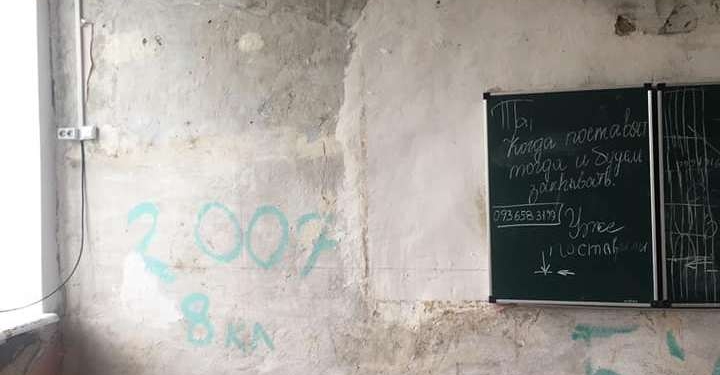 2007
8 кл
Ты,
Когда поставят
тогда и будем
закрывать.
0936583199
Уже
поставили